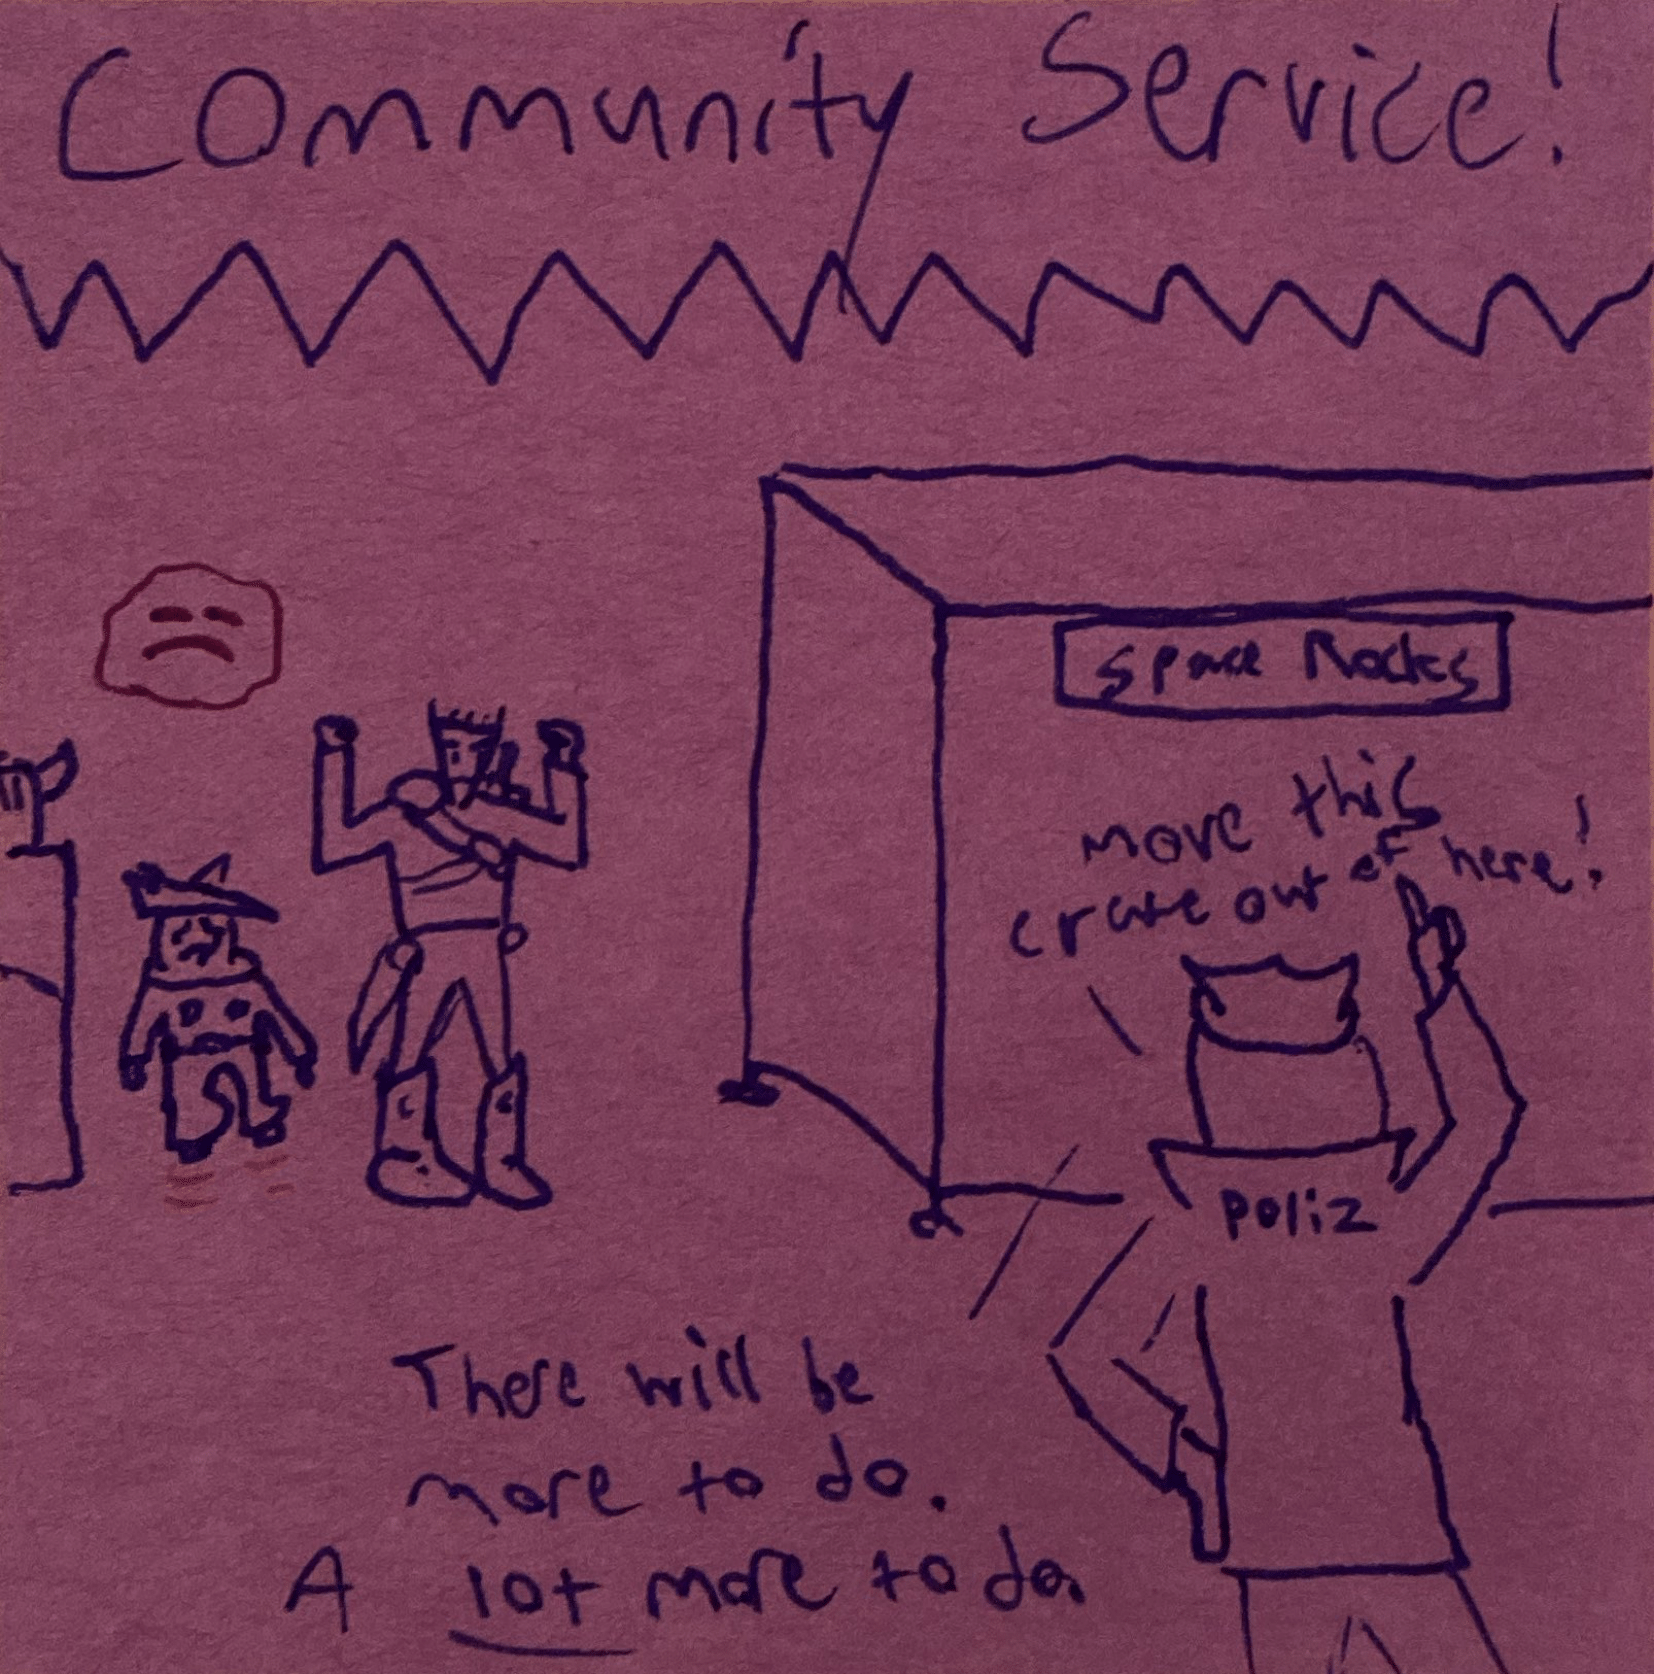 Community Service!
Space Rocks
move this
crate out of here!
Poliz
There will be
more to do.
A lot more to do.